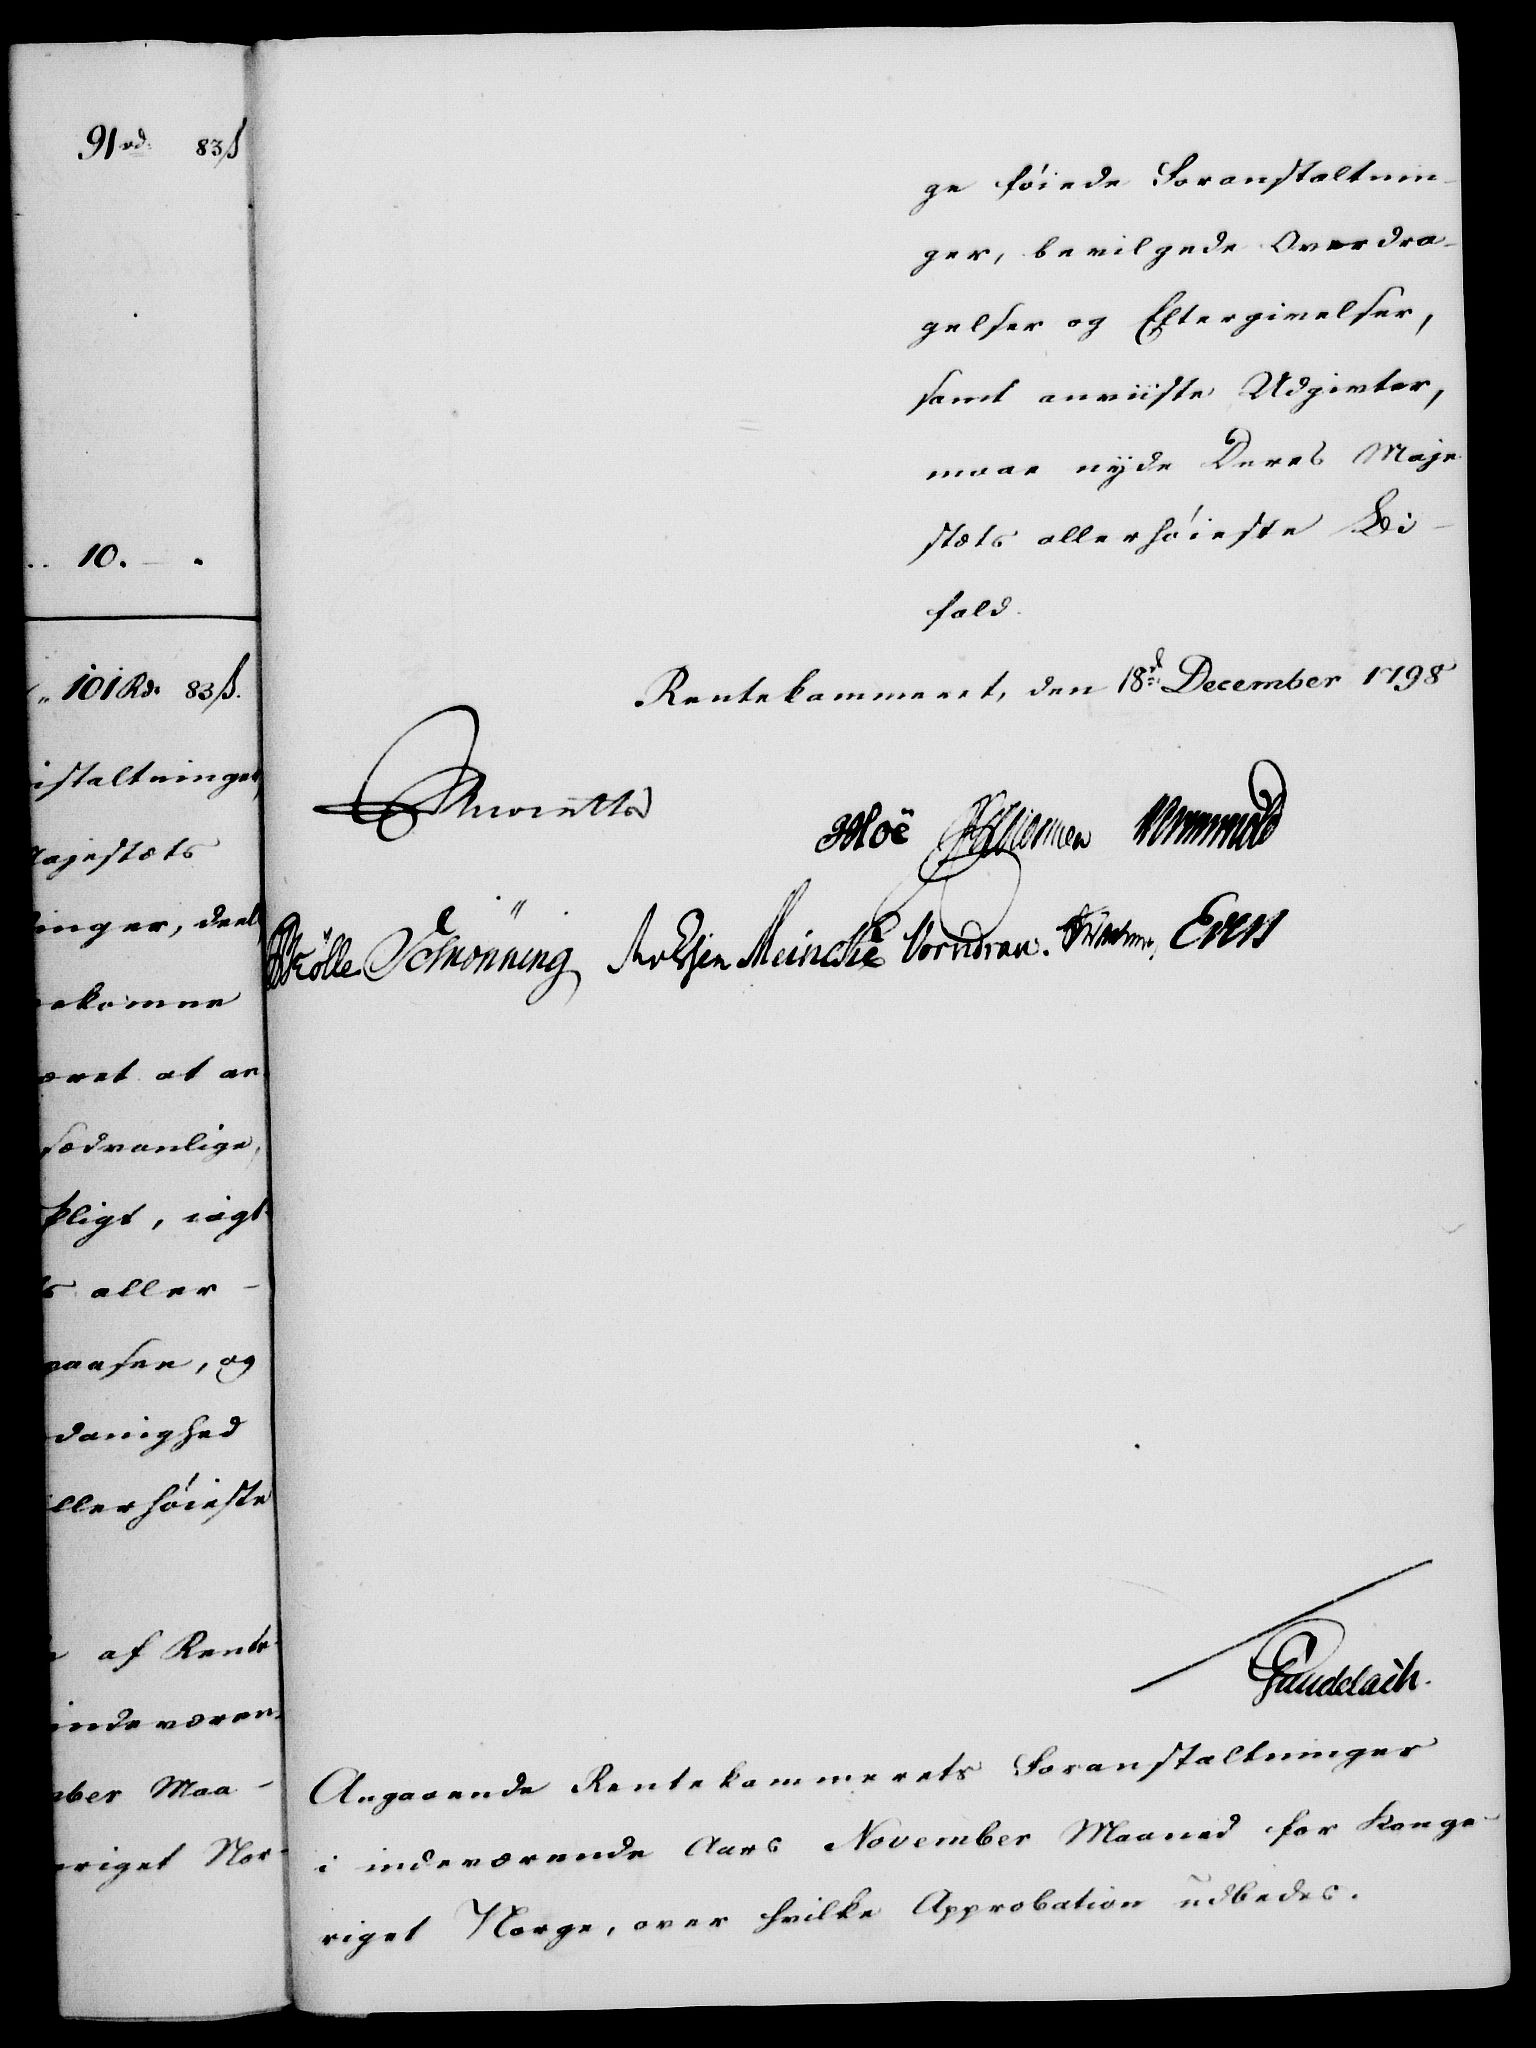 91 rd. 83 ß
10. - .
101 Rd. 83 ß.
istaltninger,
ajestæts
inger, deel
ekomne
æret at an
sædvanlige,
pligt, iagt-
s aller-
aasee, og
danighed
llerhöieste
af Rente-
indeværen-
ber Maa-
riget Nor-
ge föiede Foranstaltnin-
ger, bevilgede Overdra-
gelser og Eftergivelser,
samt anviiste Udgivter,
maae nyde Deres Maje
stæts allerhöieste Bi-
fald.
Rentekammeret, den 18d. December 1798
Moë Wormskiold
Kölle Schönning Meincke Vorndran. Evers
Angaaende Rentekammerets Foranstaltninger
i indeværende Aars November Maaned for Konge-
riget Norge, over hvilke Approbation udbedes.